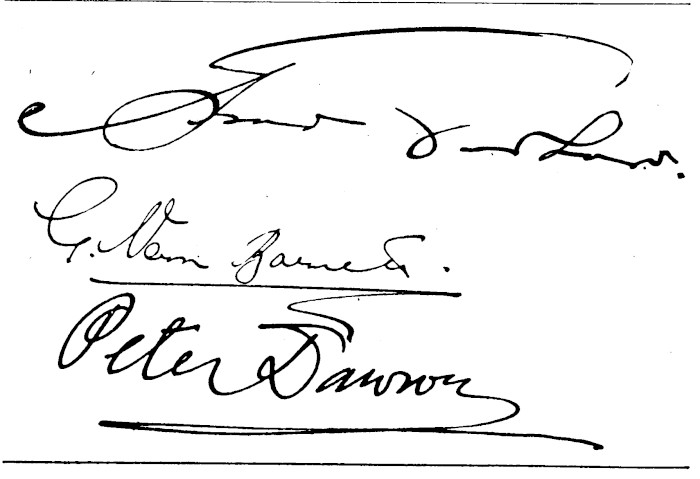 G. Vern Barnett.
Peter Dawson